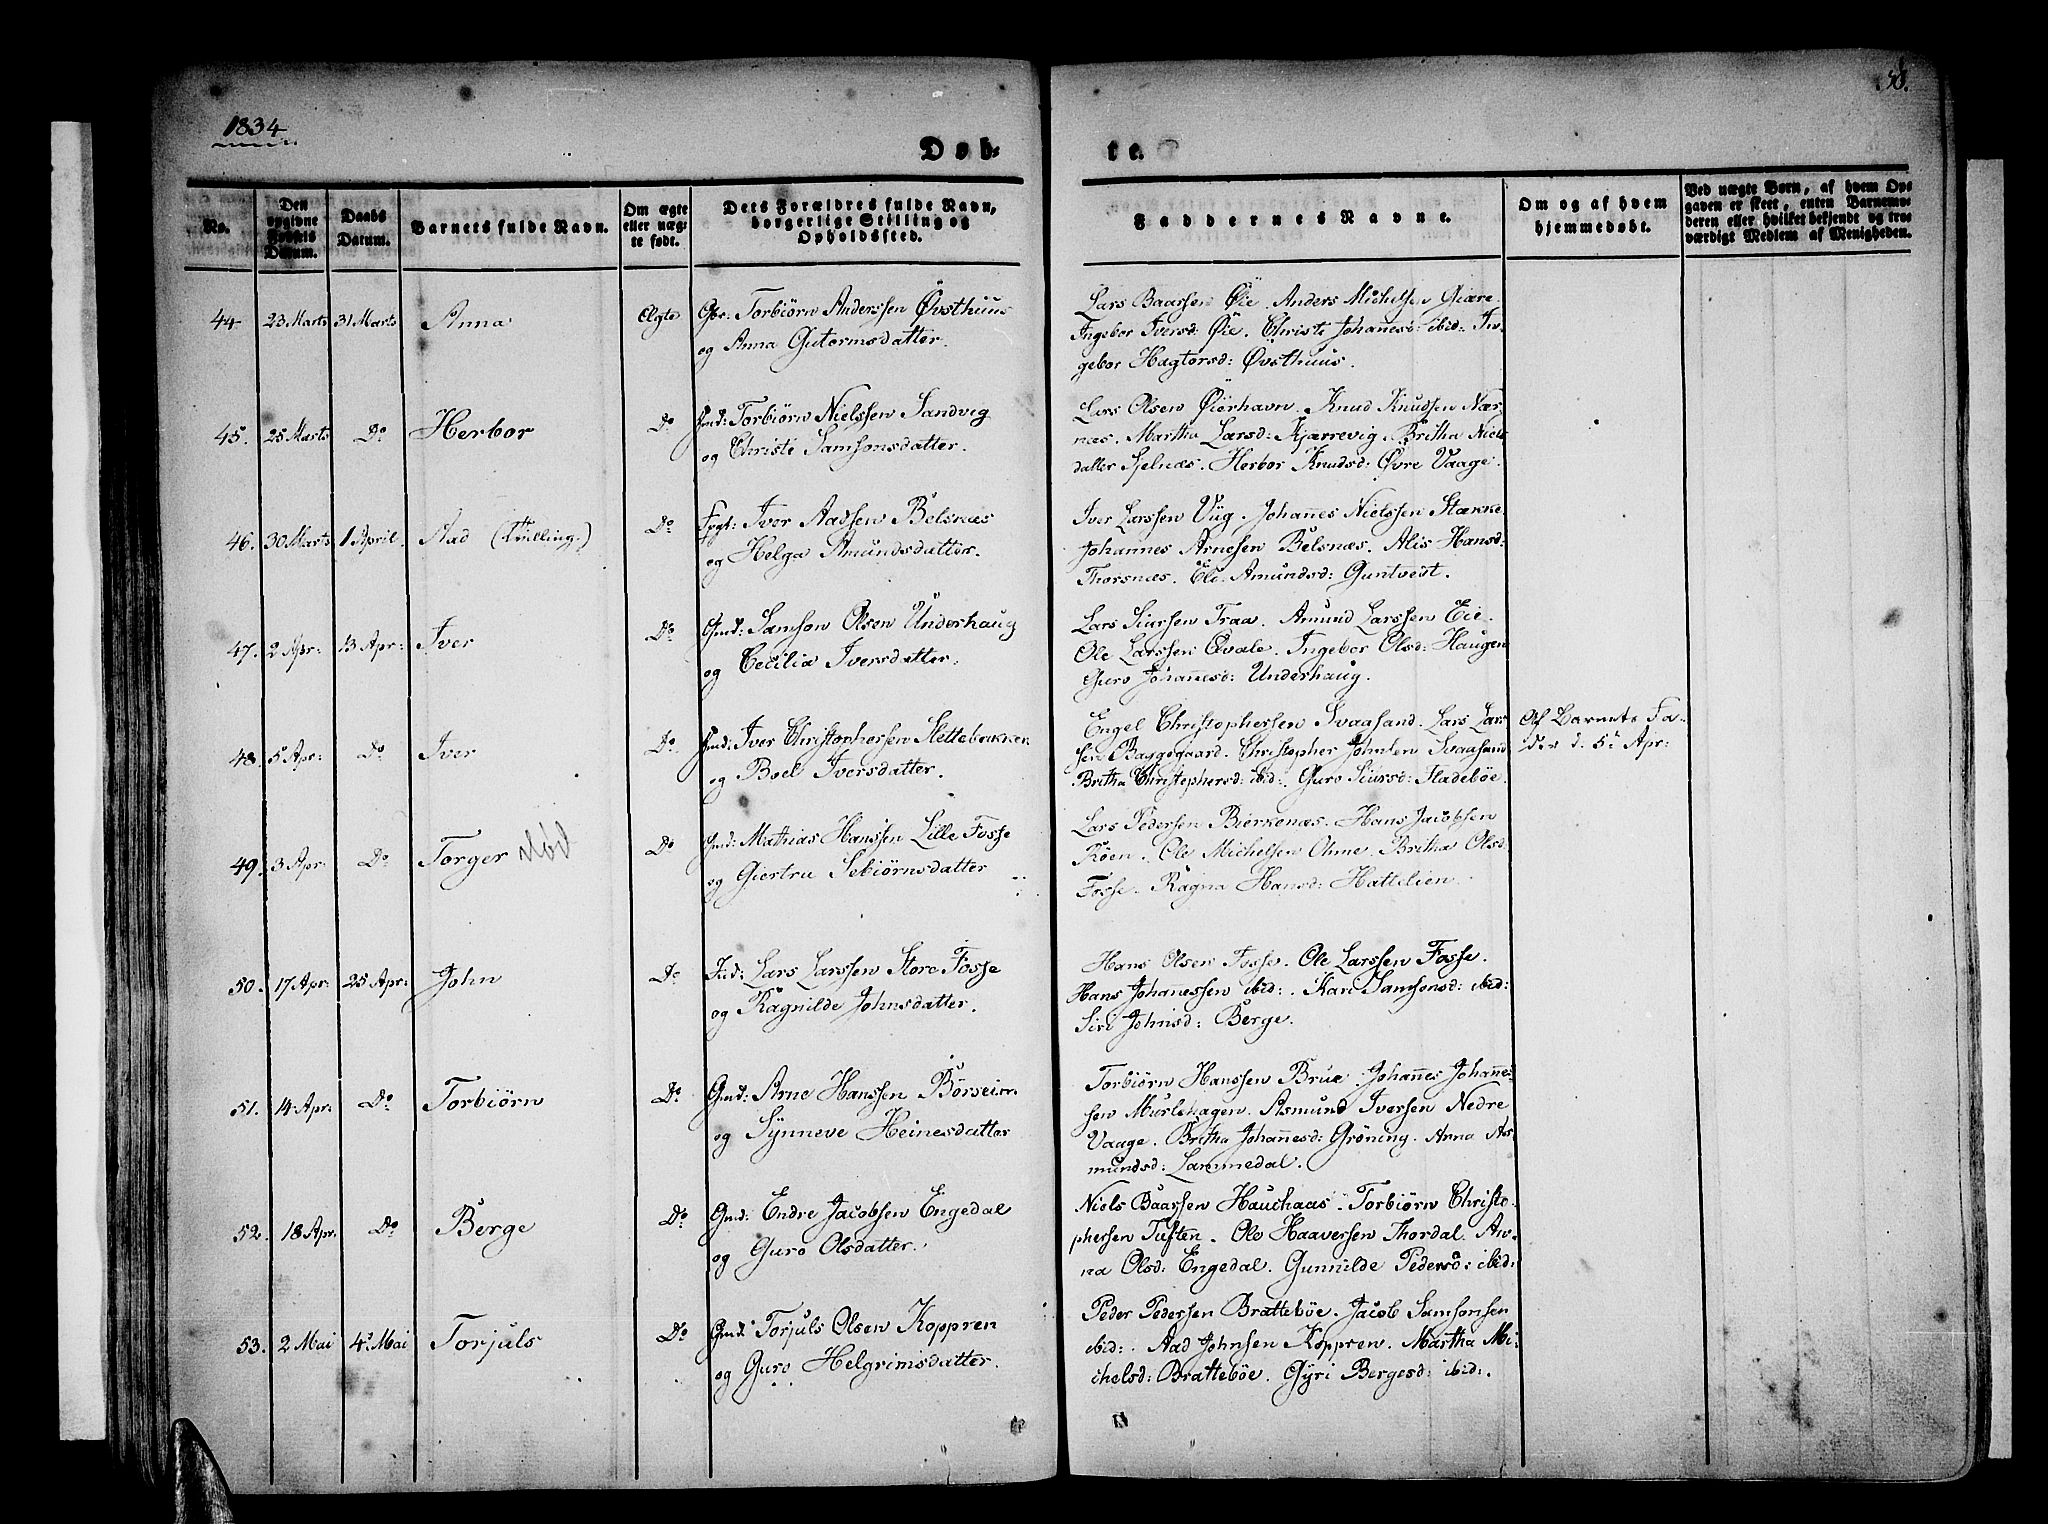 1834
Døb-
te.
No.
Den opgivne Fødsels Datum.
Daabs Datum.
Barnets fulde Navn.
Om ægte eller uægte født.
Dets Forældres fulde Navn, borgerlige Stilling og Opholdssted.
Faddernes Navne.
Om og af hvem hjemmedøbt.
Ved uægte Børn, af hvem Opgaven er skeet, enten Barnemoderen eller hvilket bekjendt og troværdigt Medlem af Menigheden.
44 23 Marts 31 Marts Anna Ægte Gbr: Torbiörn Anderssen Øvsthuus
og Anna Gutormsdatter.
Lars Baarsen Øie. Anders Michelsen Giære.
Ingebor Iversd: Øie. Christi Johanesd: ibid: In-
gebor Hagtorsd: Øvsthuus.
45. 25 Marts Do Herbor Do Torbiörn Nielssen Sandvig
og Christi Samsonsdatter.
Lars Olsen Øierhavn. Knud Knudsen Nær-
næs. Martha Larsd: Kjærrevig. Britha Niels
datter Sjelnæs. Herbor Knudsd: Øvre Vaage.
46. 30 Marts 1 April. Aad (Tvilling.) Do Iver Aadsen Belsnæs
og Helga Amundsdatter.
Iver Larssen Vüg. Johannes Nielssen Stække
Johannes Arnesen Belsnæs. Alis Hansd:
Thorsnæs. Eli Amundsd: Guntveit.
47. 2 Apr: 13 Apr: Iver Do Gmd: Samson Olsen Underhaug
og Cecilia Iversdatter.
Lars Siursen Traa. Amund Larssen Eie.
Ole Larssen Qvale. Ingebor Olsd: Haugen
Guro Johannesd: Underhaug.
48. 5 Apr: Do Iver Do Iver Christophersen Slettebrækken
og Boel Iversdatter.
Engel Christophersen Svaasand. Lars Lars
sen Baggegaard. Christopher Johnsen Svaasand
Britha Christophersd: ibid: Guro Siursd: Fladebøe.
Af Barnets Fa-
der d. 5t Apr:
49. 3 Apr: Do Torger Do Gmd: Mathias Hanssen Lille Fosse
og Giertru Sebiörnsdatter
Lars Pedersen Bierkenæs. Hans Jacobsen
Röen. Ole Michelsen Ohme. Britha Olsd:
Fosse. Ragna Hansd: Hattelien.
50. 17 Apr: 25 Apr: John Do Lars Larssen Store Fosse
og Ragnilde Johnsdatter.
Hans Olsen Fosse. Ole Larssen Fosse.
Hans Johanessen ibid: Kari Samsonsd: ibid:
Siri Johnsd: Berge.
51. 14 Apr: Do Torbiörn Do Gmd: Arne Hanssen Börseim
og Synneve Heinesdatter
Torbiörn Hanssen Brue. Johannes Johannes-
sen Murlehagen. Asmund Iversen Nedre
Vaage. Britha Johannesd: Gröning. Anna As-
mundsd: Lammedal.
52. 18 Apr. Do Berge Do Gmd: Endre Jacobsen Engedal
og Guro Olsdatter.
Niels Baarsen Hauchaas. Torbiörn Christo-
phersen Tuften. Ole Haaversen Thordal. An-
na Olsd: Engedal. Gunnilde Pedersd: ibid:
53. 2 Mai 4. Mai Torjuls Do Gmd: Torjuls Olsen Koppren
og Guro Helgrimsdatter.
Peder Pedersen Brattebøe. Jacob Samsonsen
ibid: Aad Johnsen Koppren. Martha Mi-
chelsd: Brattebøe. Gyri Bergesd: ibid:.